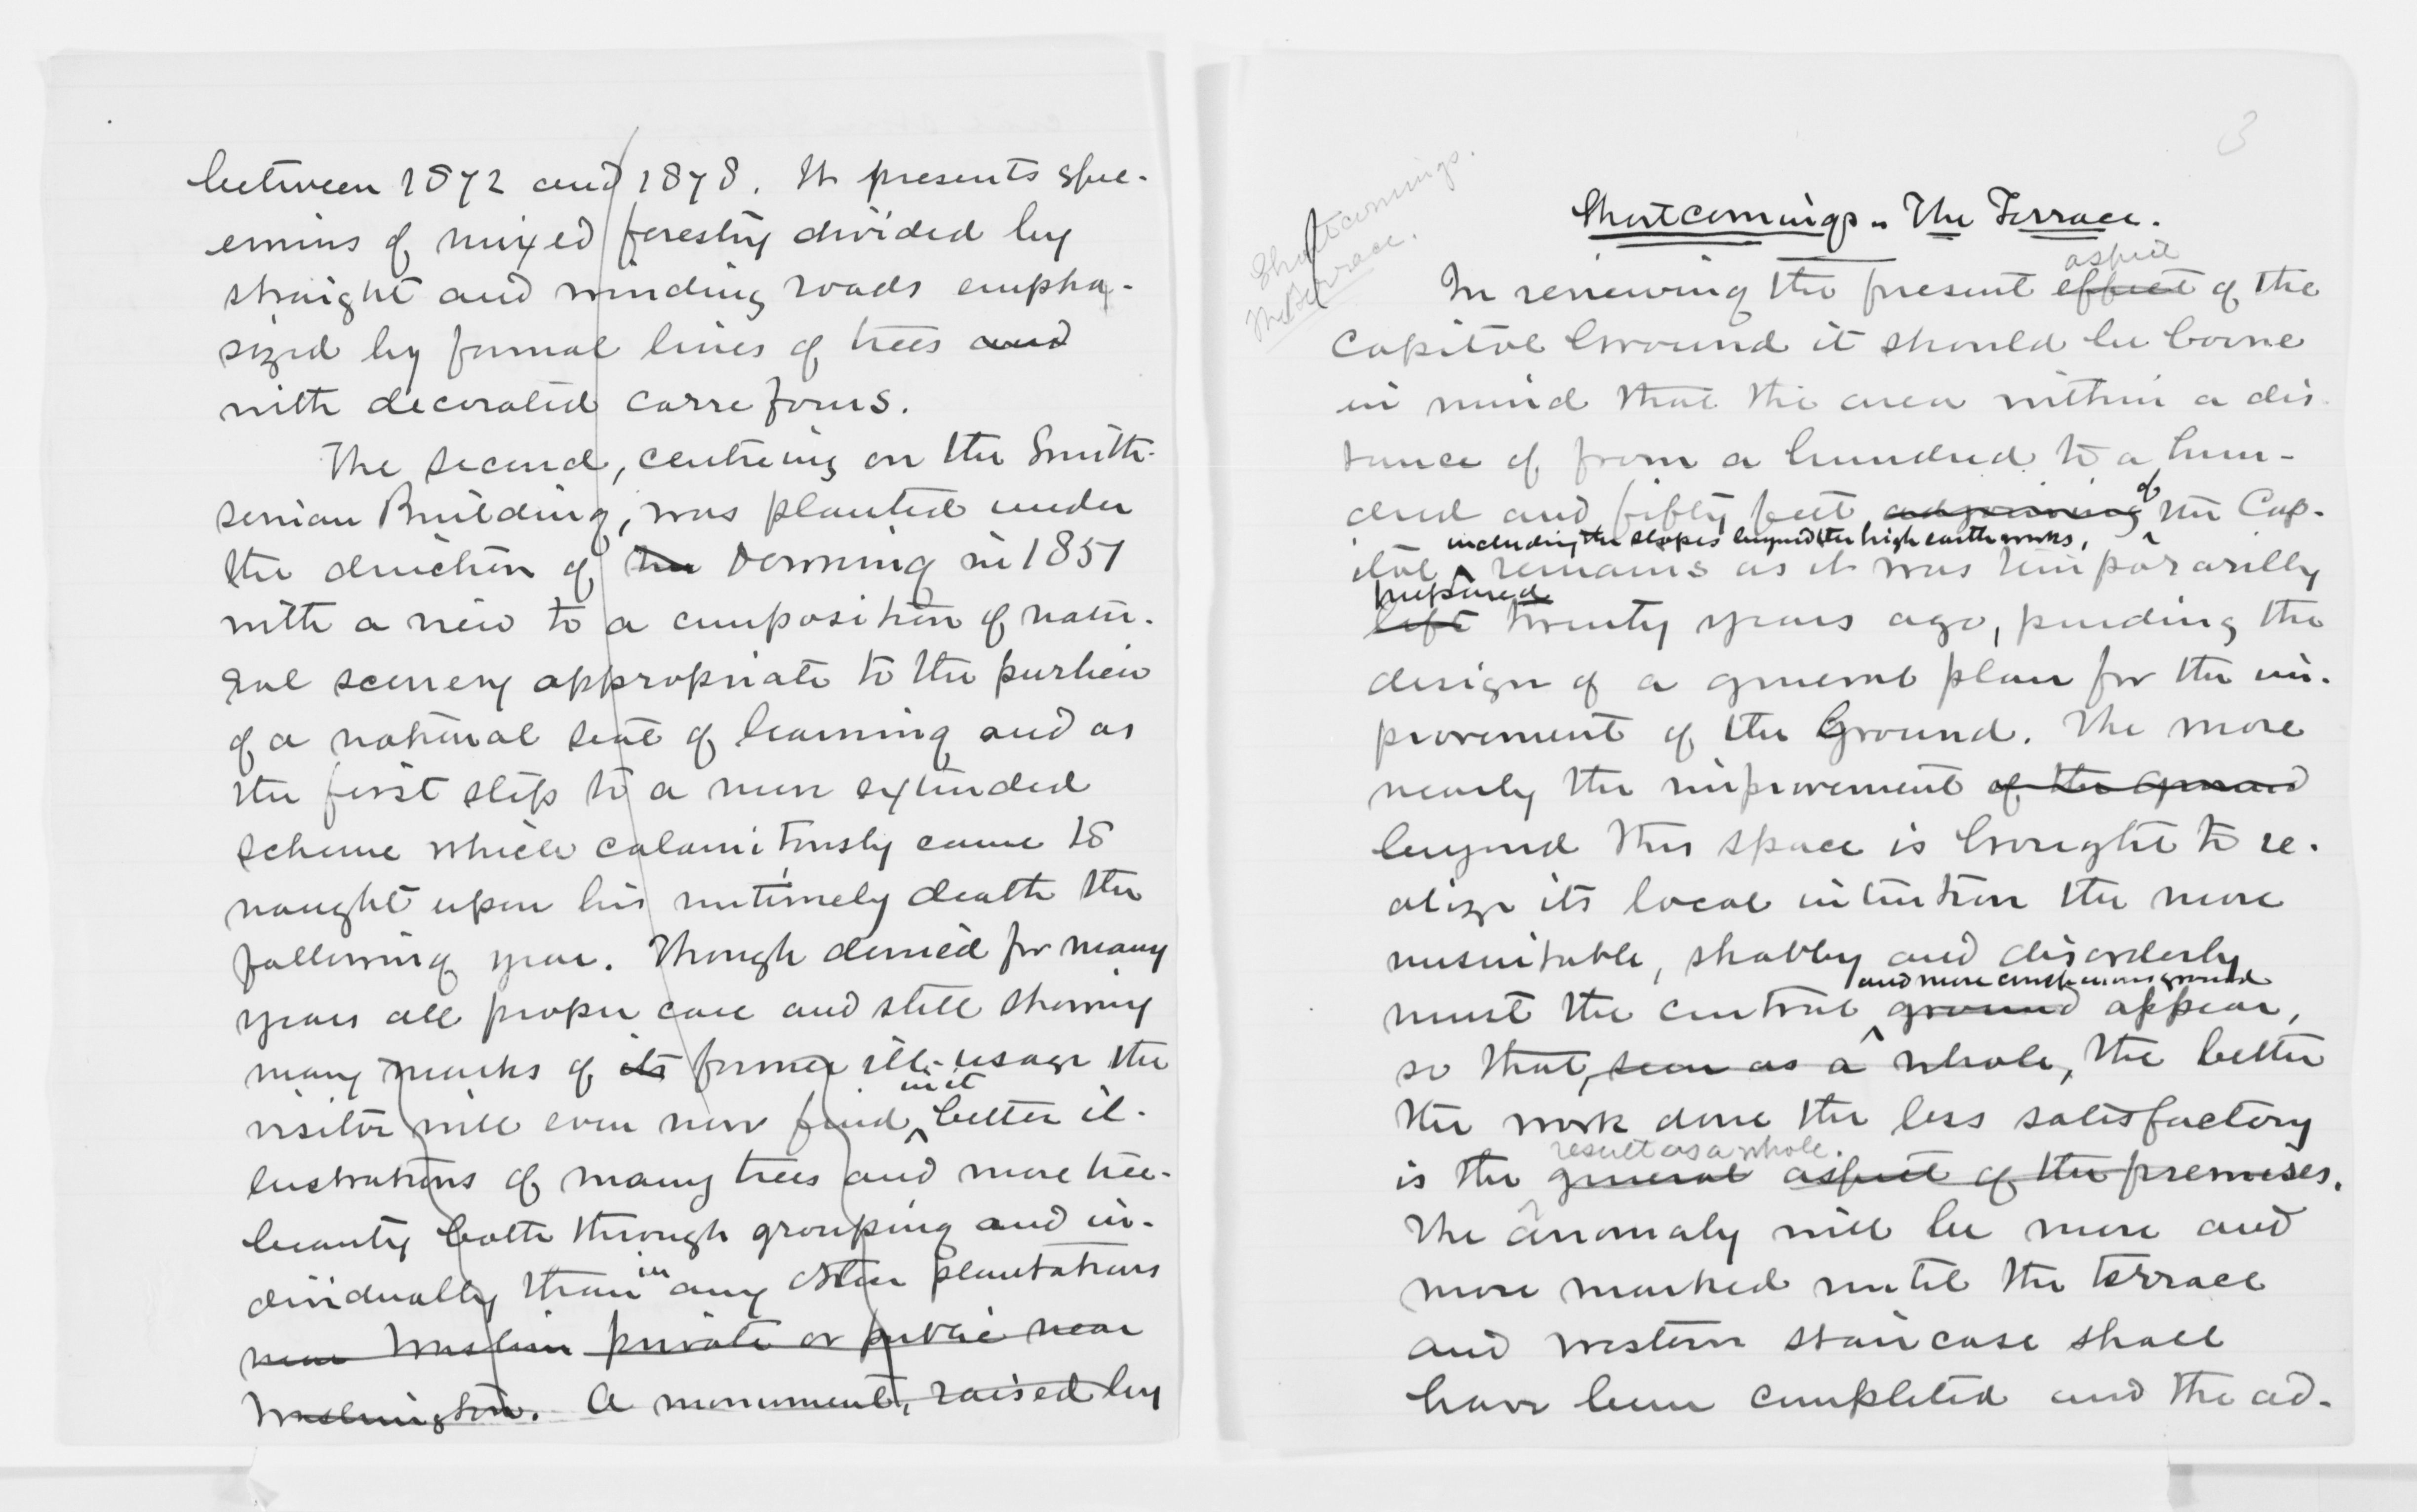 between 1872 and 1878. It presents spec-
emins of mixed forestry divided by
straight and winding roads empha-
sized by formal lines of trees and
with decorated carrefours.
The second, centreing on the Smith-
sonian Building, was planted under
the direction of the Downing in 1851
with a view to a composition of natu-
ral scenery appropriate to the purlieu
of a national seat of learning and as
the first step to a more extended
scheme which calamitously came to
nought upon his untimely death the
following year. Though denied for many
years all proper care and still showing
many marks of its former ill-usage the
in it
visitor will even now find better il-
lustrations of many trees and more tree-
beauty both through grouping and in-
dividually than in any other plantations
near private or public near
Washington. A monument, raised by
3
Shortcomings.
The Terrace.
Shortcomings - The Terrace.
aspect
In reviewing the present effect of the
Capitol Ground it should be borne
in mind that the area within a dis-
tance of from a hundred to a hun-
of
dred and fifty feet adjoining the Cap-
including the slopes beyond the high earthworks,
itol remains as it was temporarilly
prepared
left twenty years ago, pending the
design of a general plan for the im-
provement of the Ground. The more
nearly the improvement of the ground
beyond this space is brought to re-
alize its local intention the more
unsuitable, shabby and disorderly
and more conspicuous ground
must the central ground appear,
so that, seen as a whole, the better
the work done the less satisfactory
result as a whole.
is the general aspect of the premises.
The anomaly will be more and
more marked until the terrace
and western staircase shall
have been completed and the ad-